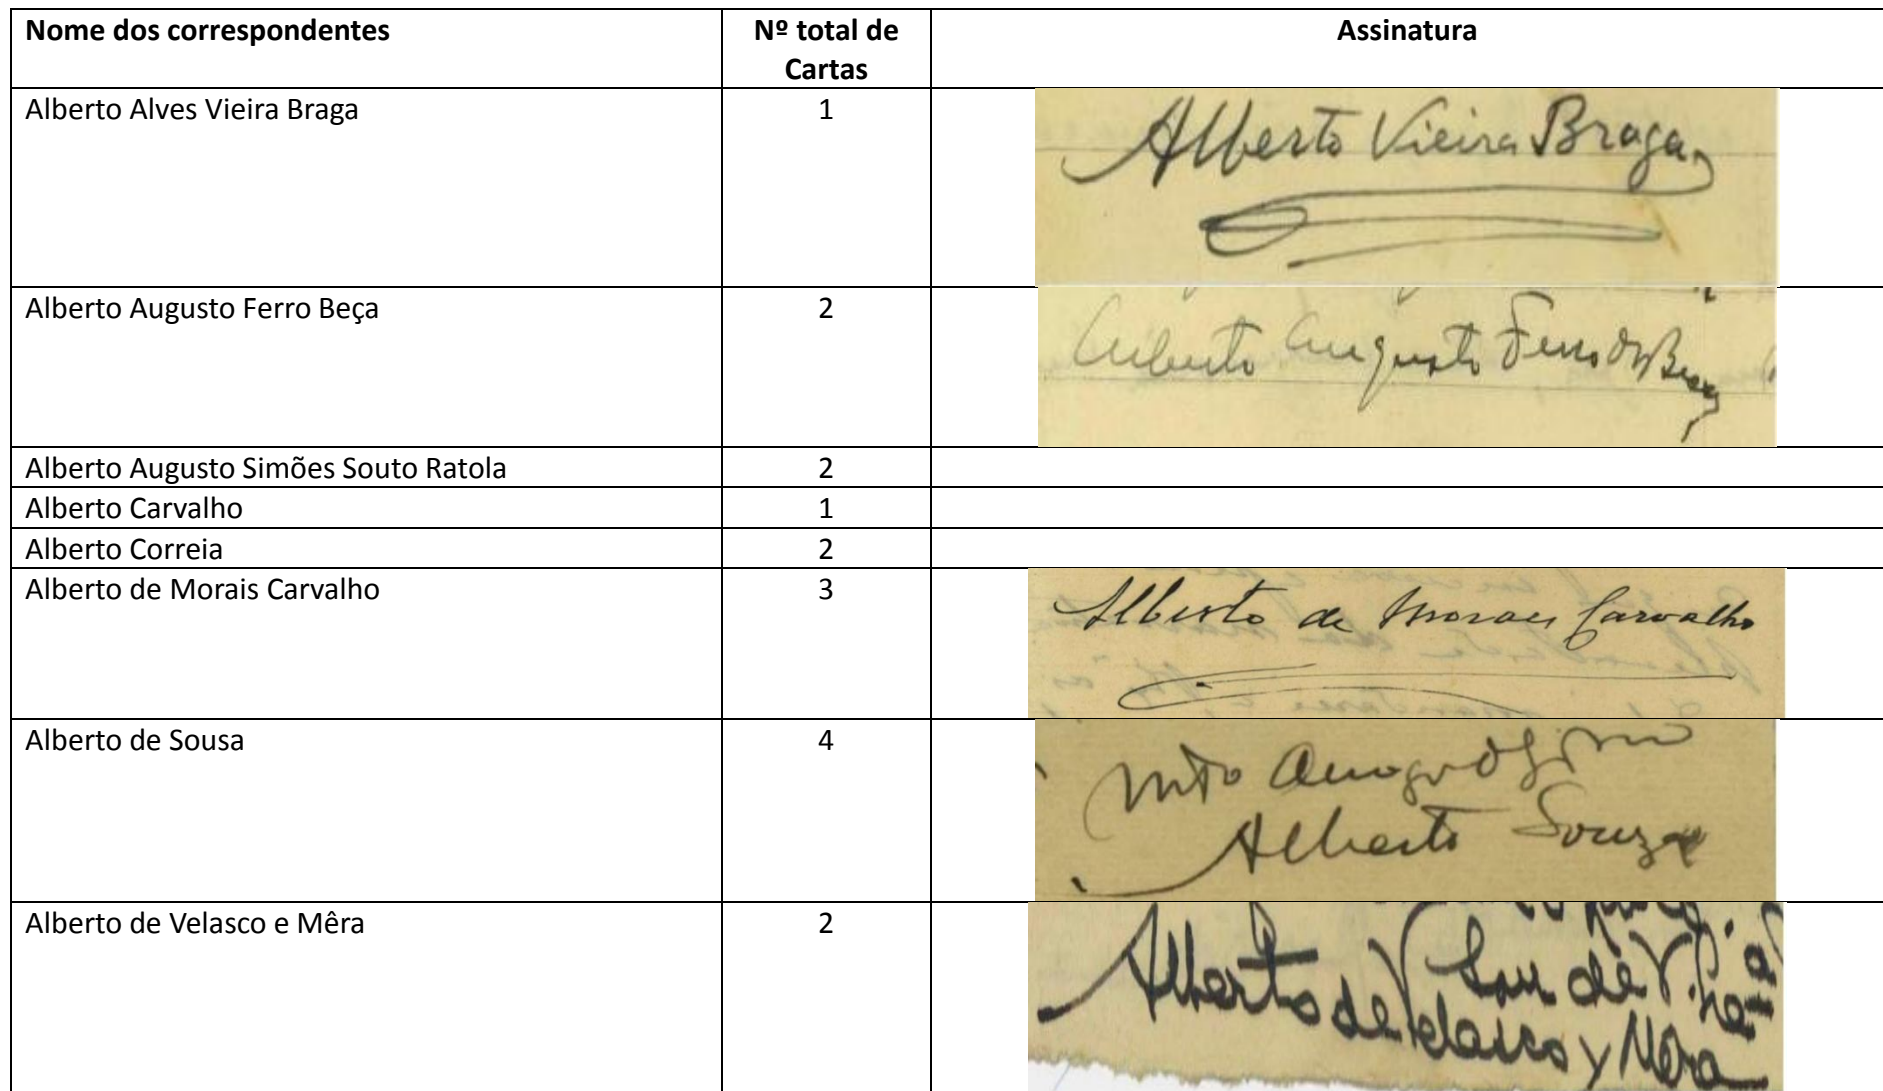 Nome dos correspondentes
Nº total de
Cartas
Assinatura
Alberto Alves Vieira Braga
1
Alberto Vieira Braga
Alberto Augusto Ferro Beça
2
Alberto Augusto Ferro Beça
Alberto Augusto Simões Souto Ratola
2
Alberto Carvalho
1
Alberto Correia
2
Alberto de Morais Carvalho
3
Alberto de Moraes Carvalho
Alberto de Sousa
4
Alberto Souza
Alberto de Velasco e Mêra
2
Alberto de Velasco y Mêra